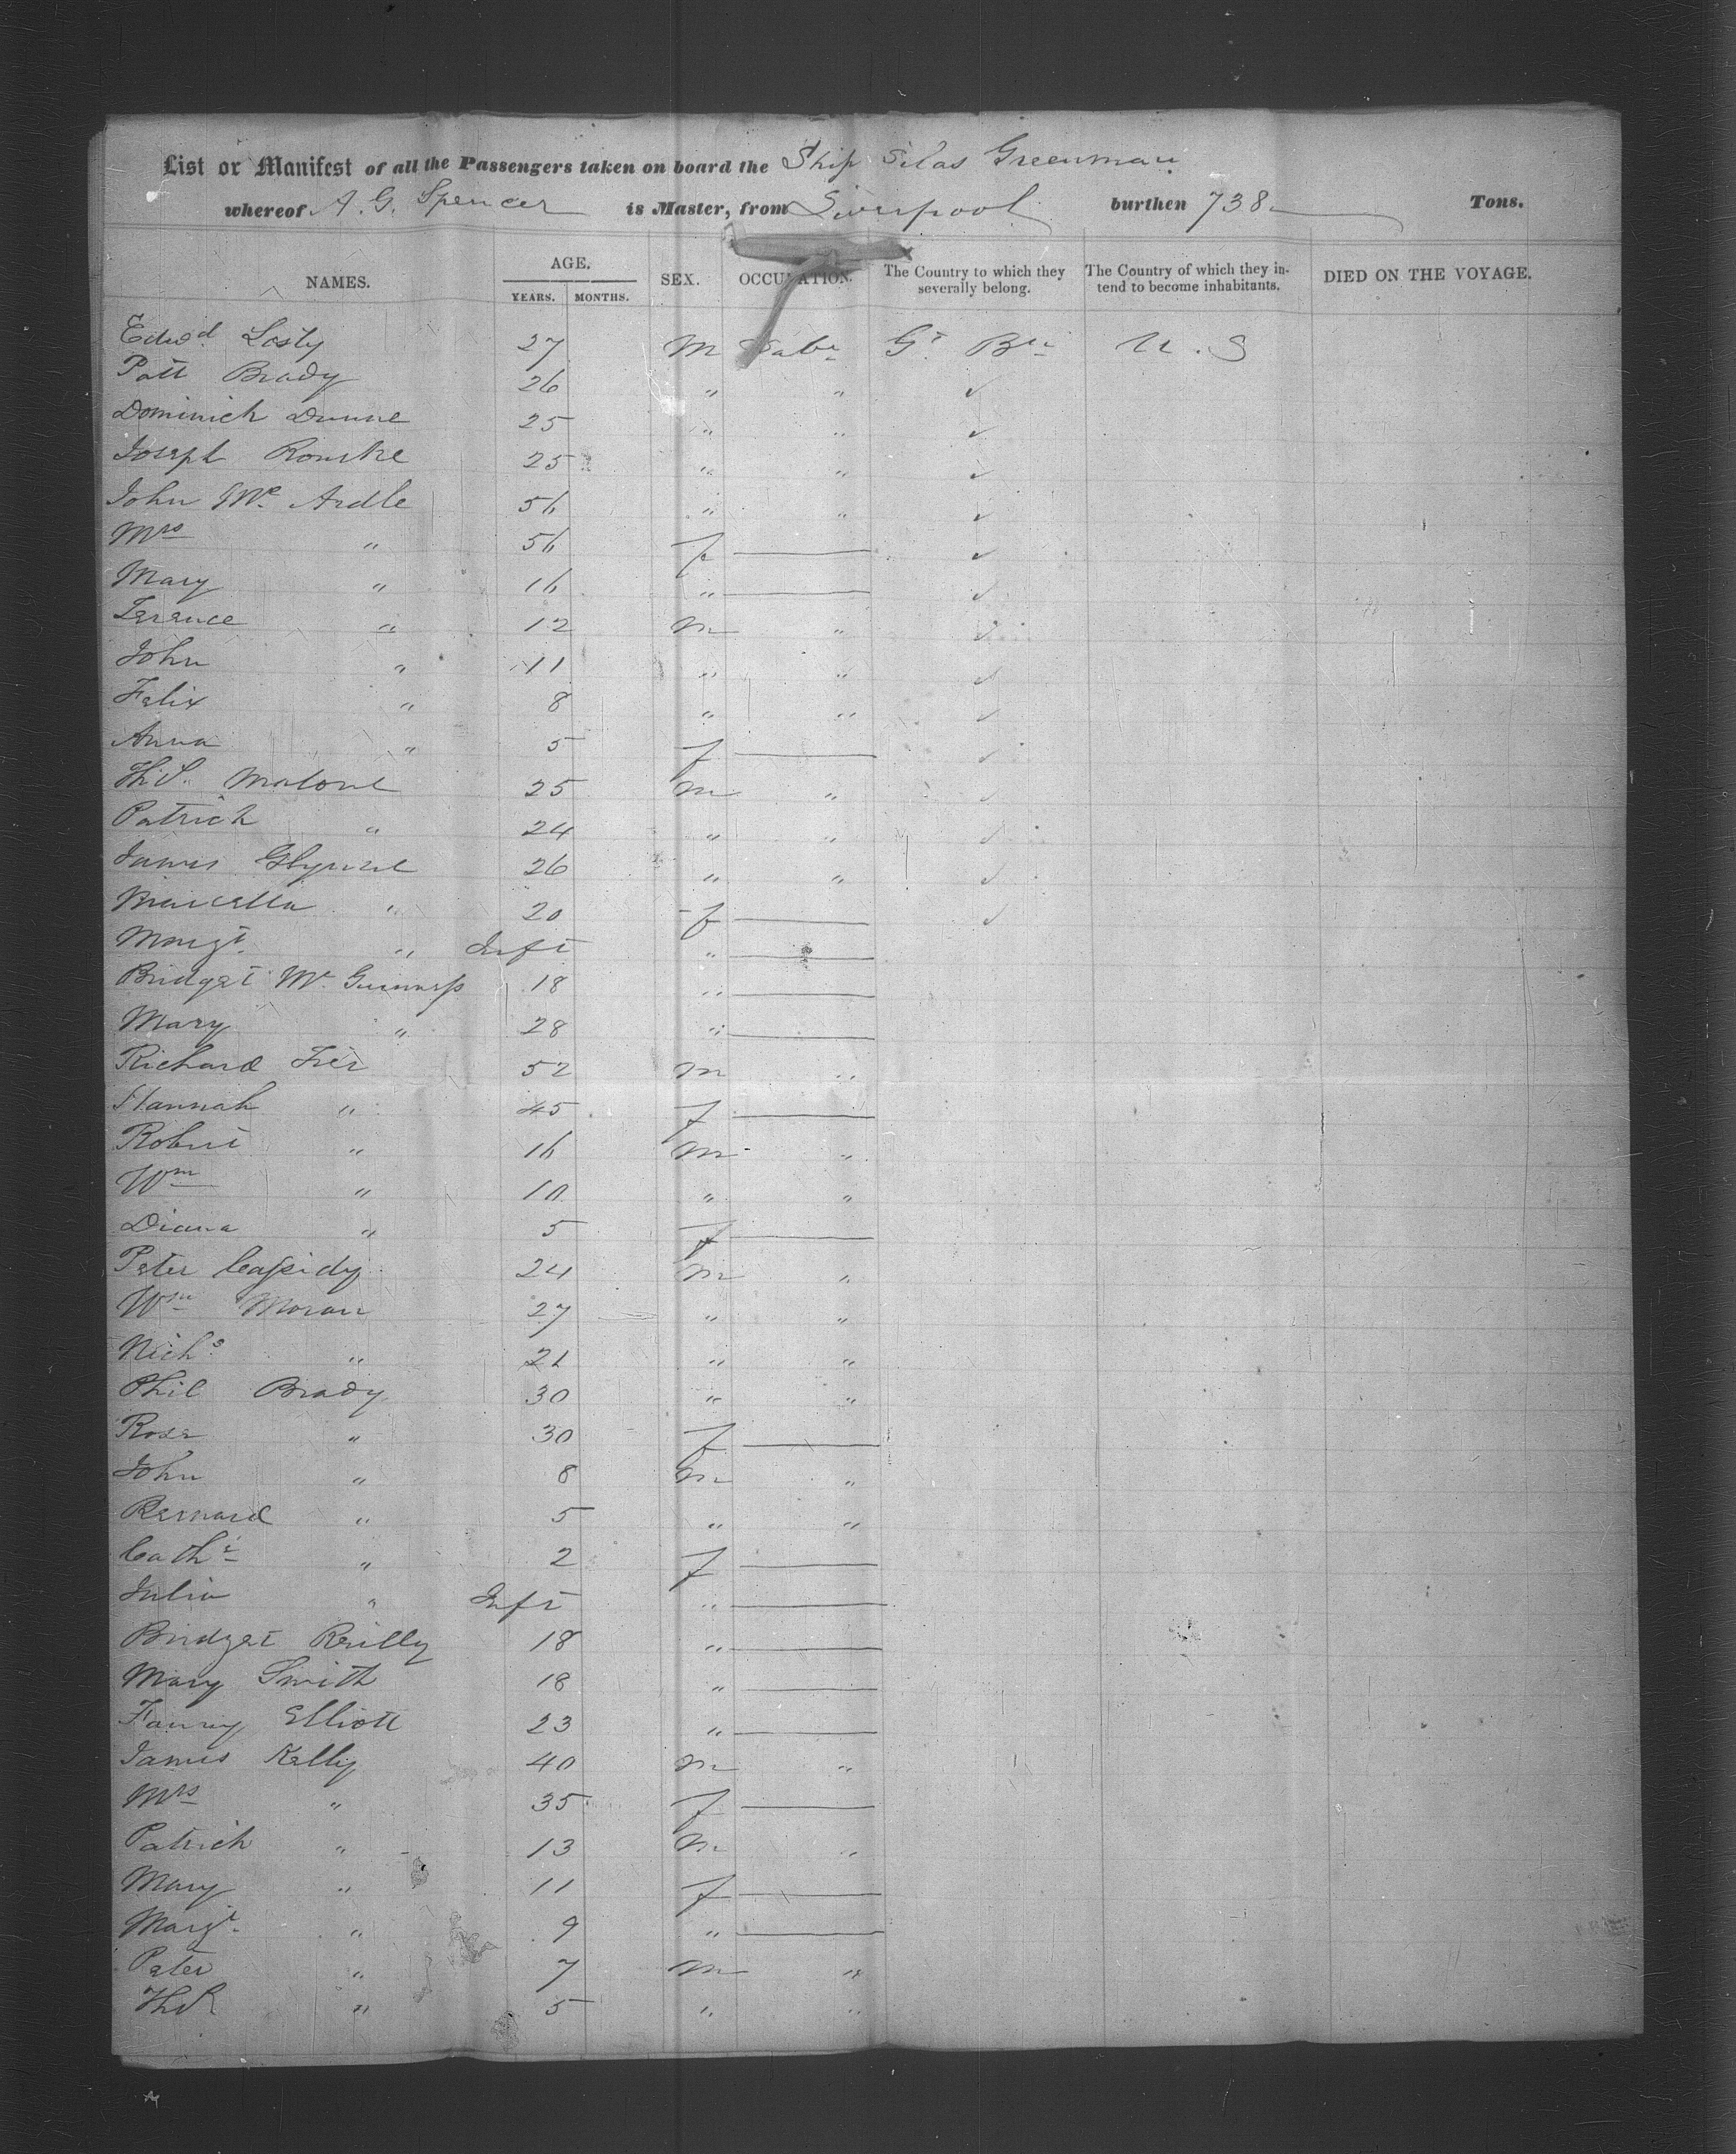 List or Manifest of all the Passengers taken on board the Ship Silas Greenman
whereof A. G. Spencer is Master, from Liverpool burthen 738 Tons.
NAMES. AGE. YEARS. MONTHS. SEX. OCCUPATION. The Country to which they severally belong. The Country of which they intend to become inhabitants. DIED ON THE VOYAGE.
Edwd. 27 M Labr Gt. Bn U. S
Patt Brady 26 " " ✓
Dominick Dunne 25 " " ✓
Joseph Rourke 25 " " ✓
John Mc. Ardle 56 " " ✓
Mrs " 56 f — ✓
Mary " 16 " — ✓
Terence " 12 m " ✓
John " 11 " " ✓
Felix " 8 " " ✓
Anna " 5 f — ✓
Thos. Malone 25 m " ✓
Patrick " 24 " " ✓
James Glynne 26 " " ✓
Marcella " 20 f — ✓
Margt. " Inft " —
Bridget Mc. 18 " —
Mary " 28 " —
Richard 52 m "
Hannah " 45 f —
Robert " 16 m "
Wm " 10 " "
Diana " 5 f —
Peter Cassidy 24 m "
Wm Moran 27 " "
Nichs. " 21 " "
Phil Brady 30 " "
Rose " 30 f —
John " 8 m "
Bernard " 5 " "
Cathe " 2 f —
Julia " Inft " —
Bridget Reilly 18 " —
Mary Smith 18 " —
Fanny Elliott 23 " —
James Kelly 40 m "
Mrs " 35 f —
Patrick " 13 m "
Mary " 11 f —
Margt. " 9 " —
Peter " 7 m "
Thos " 5 " "